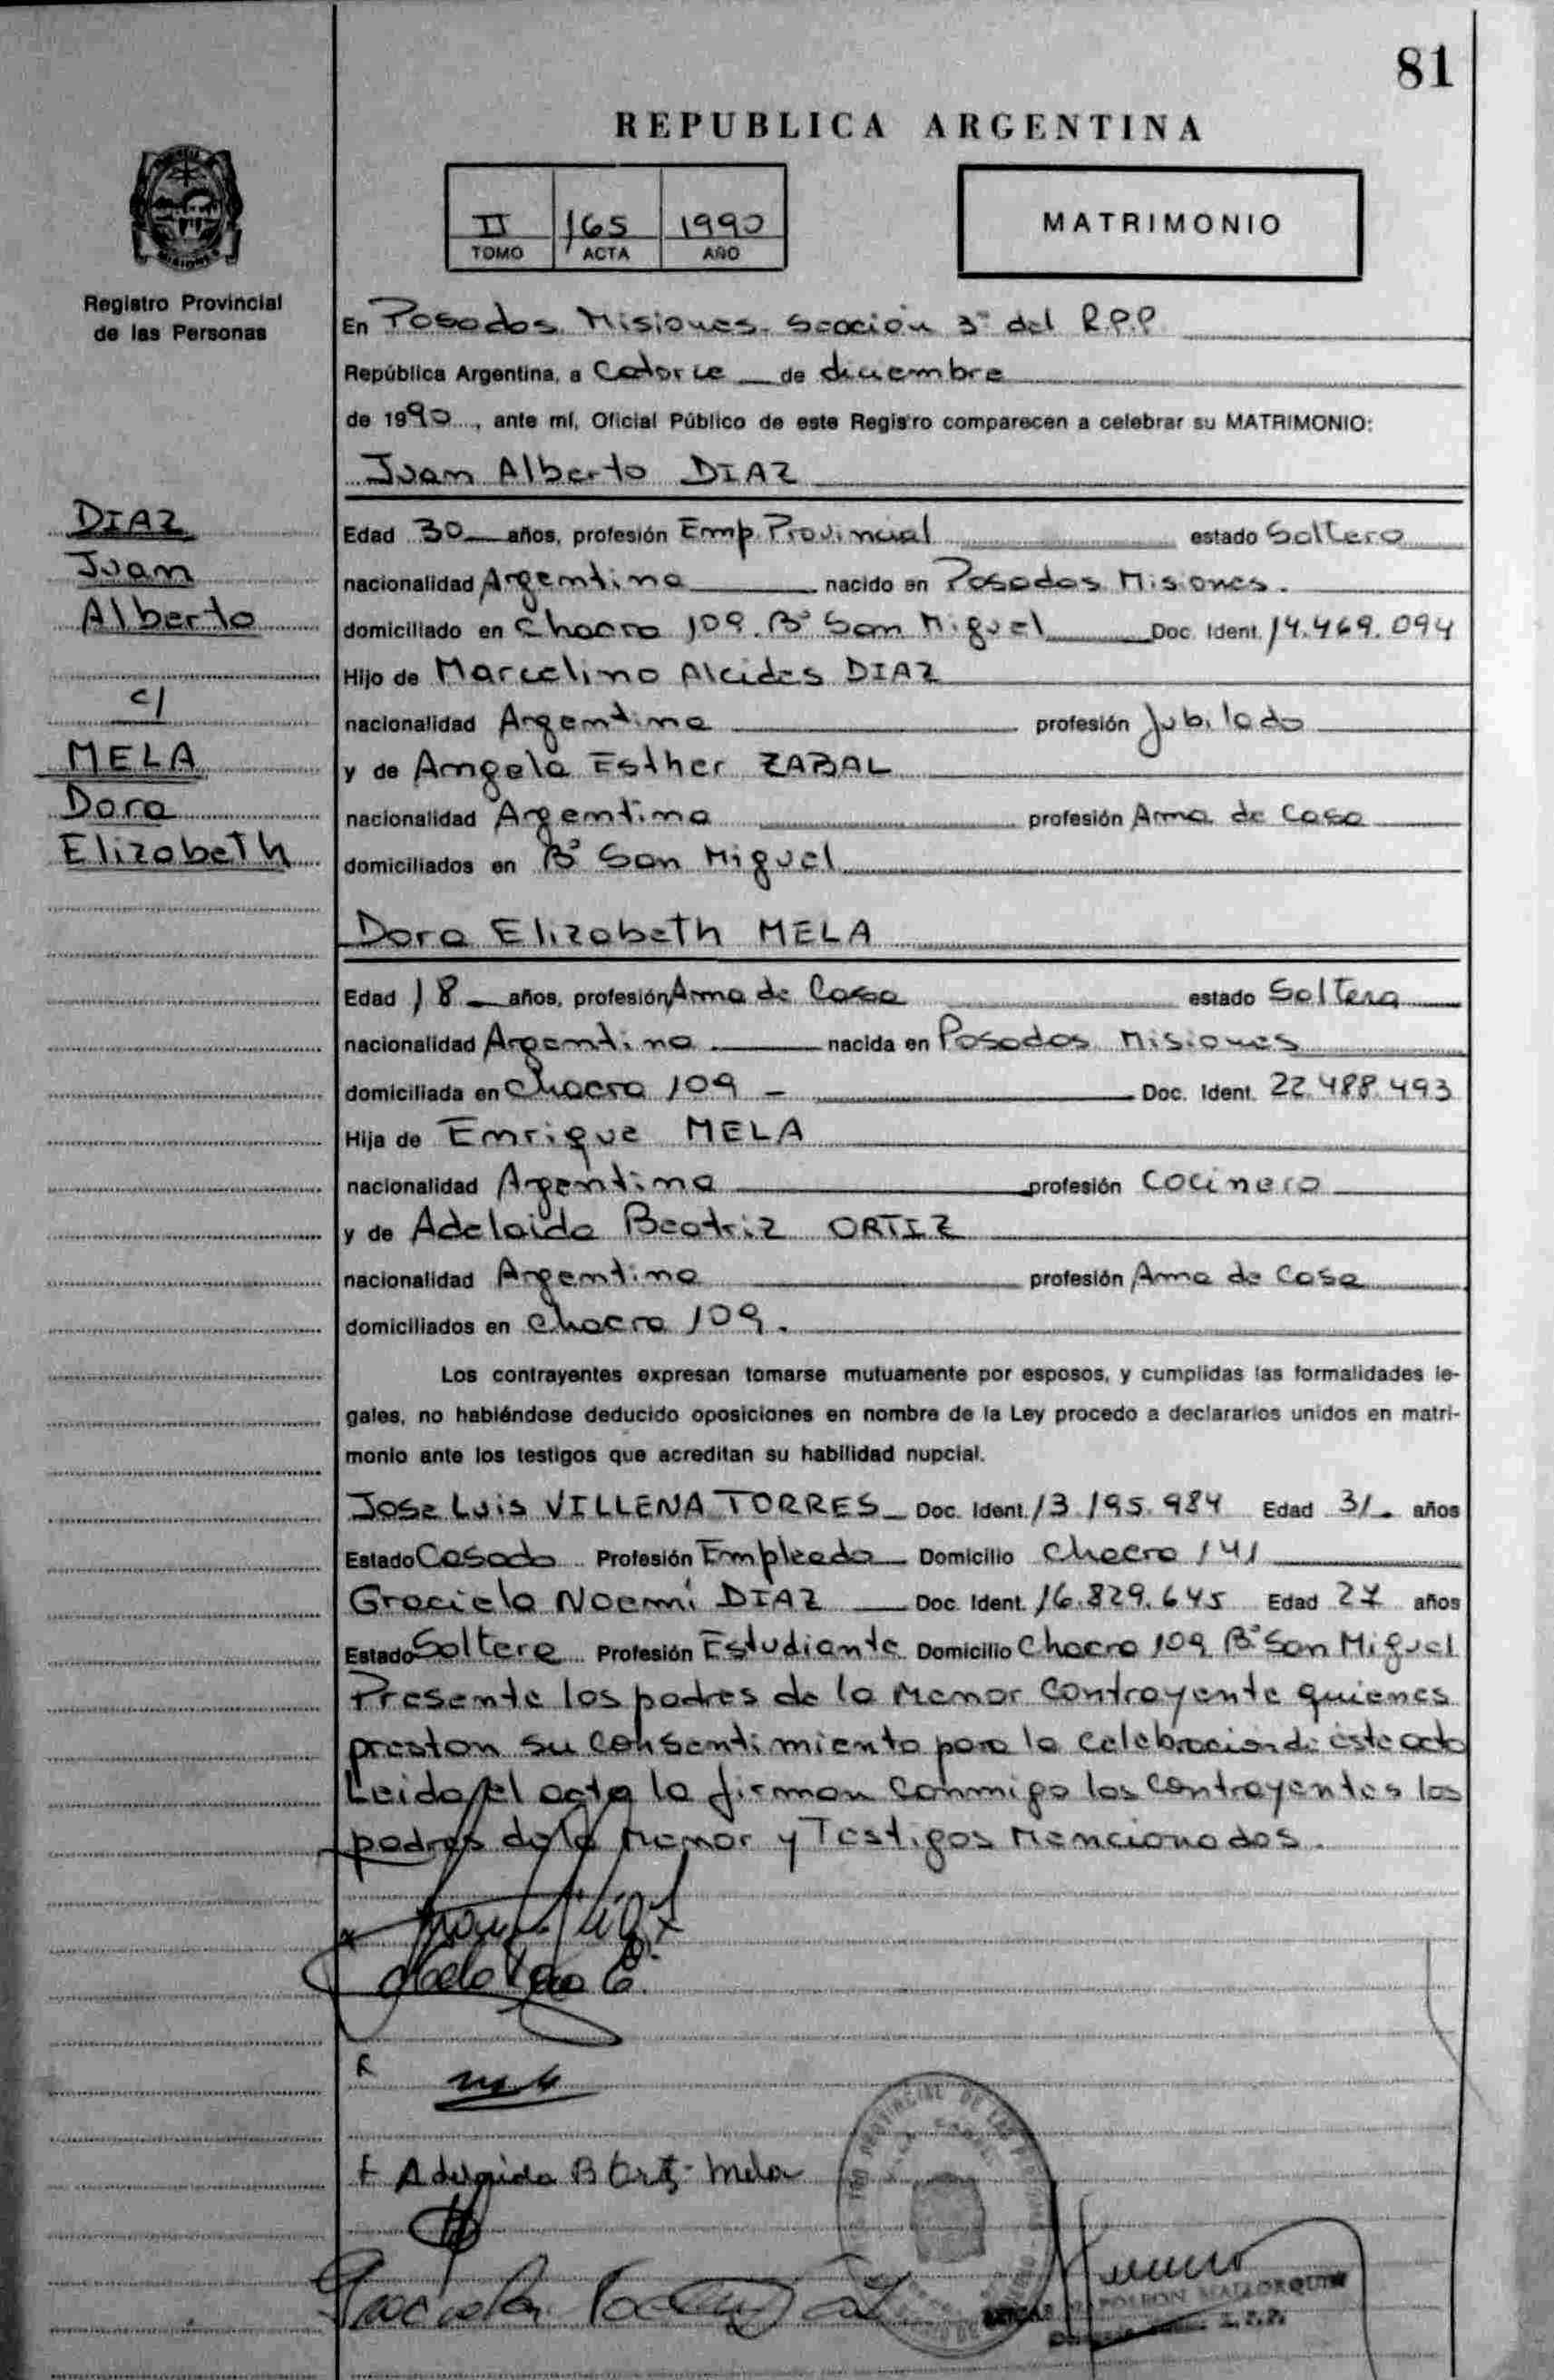 81
REPUBLICA ARGENTINA
II 165 1990
TOMO ACTA AÑO
MATRIMONIO
MISIONES
Registro Provincial
de las Personas
En Posadas Misiones. Sección 3ª del R.P.P
República Argentina, a Catorce de diciembre
de 1990, ante mí, Oficial Público de este Registro comparecen a celebrar su MATRIMONIO:
Juan Alberto DIAZ
DIAZ
Juan
Alberto
c/
MELA
Dora
Elizabeth
Edad 30 años, profesión Emp. Provincial estado Soltero
nacionalidad Argentina nacido en Posadas Misiones.
domiciliado en Chacra 109. Bº San Miguel Doc. Ident. 14.469.094
Hijo de Marcelino Alcides DIAZ
nacionalidad Argentina profesión Jubilado
y de Angela Esther ZABAL
nacionalidad Argentina profesión Ama de Casa
domiciliados en Bº San Miguel
Dora Elizabeth MELA
Edad 18 años, profesión Ama de Casa estado Soltera
nacionalidad Argentina nacida en Posadas Misiones
domiciliada en Chacra 109 - Doc. Ident. 22.488.493
Hija de Enrique MELA
nacionalidad Argentina profesión Cocinero
y de Adelaida Beatriz ORTIZ
nacionalidad Argentina profesión Ama de Casa
domiciliados en Chacra 109.
Los contrayentes expresan tomarse mutuamente por esposos, y cumplidas las formalidades le-
gales, no habiéndose deducido oposiciones en nombre de la Ley procedo a declararlos unidos en matri-
monio ante los testigos que acreditan su habilidad nupcial.
Jose Luis VILLENA TORRES Doc. Ident. 13.195.984 Edad 31 años
Estado Casado Profesión Empleado Domicilio Chacra 141
Graciela Noemí DIAZ Doc. Ident. 16.829.645 Edad 27 años
Estado Soltera Profesión Estudiante Domicilio Chacra 109 Bº San Miguel
Presente los padres de la Menor Contrayente quienes
prestan su consentimiento para la celebración de este acto
Leida el acta la firman conmigo los contrayentes los
padres de la Menor y Testigos Mencionados.
Adelaida B Ortiz Mela
NAPOLEON MALLORQUIN